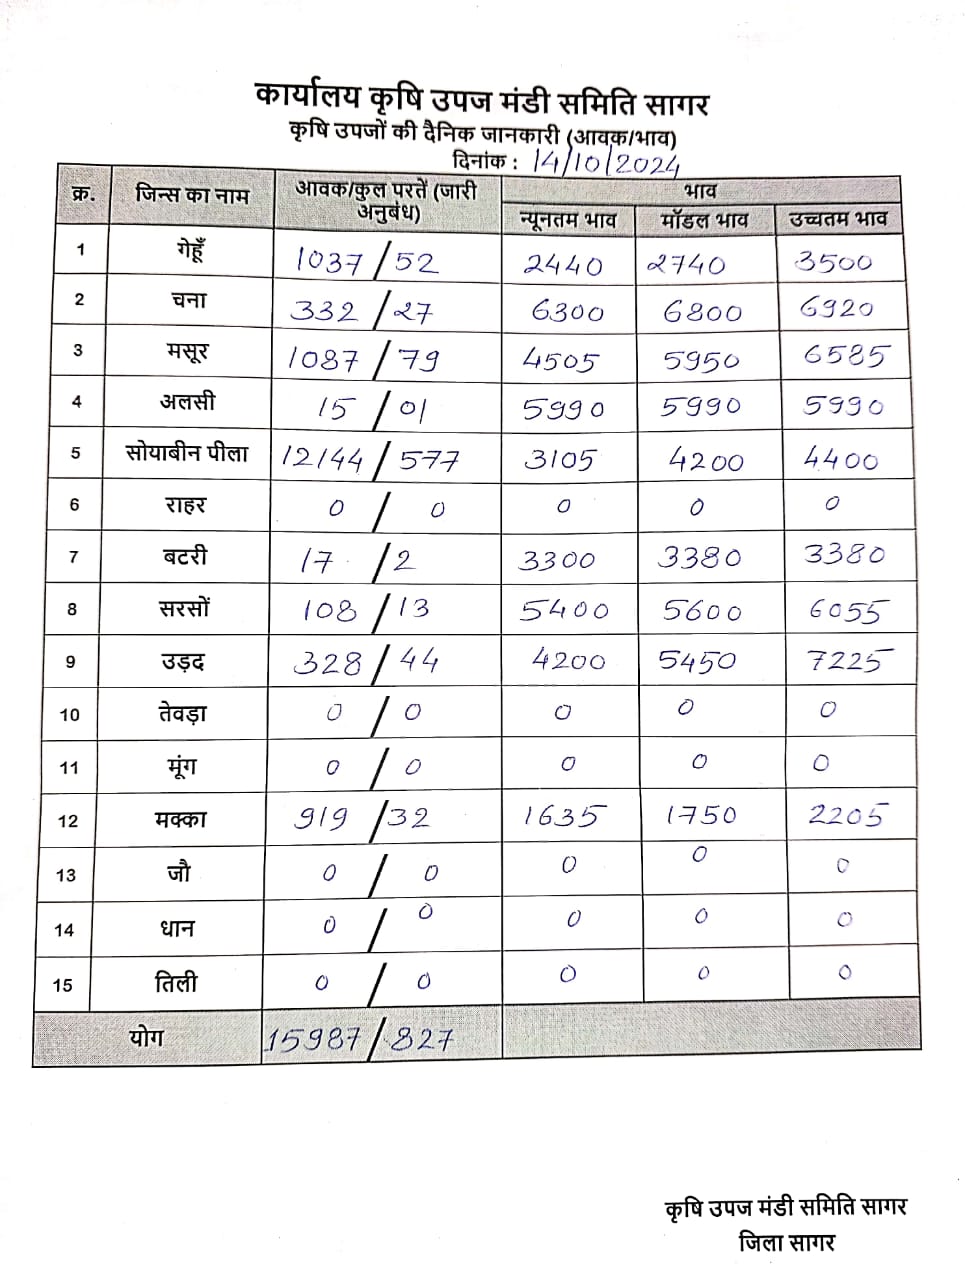 कार्यालय कृषि उपज मंडी समिति सागर
कृषि उपजों की दैनिक जानकारी (आवक/भाव)
दिनांक : 14/10/2024
क्र. जिन्स का नाम आवक/कुल परतें (जारी अनुबंध) भाव
न्यूनतम भाव मॉडल भाव उच्चतम भाव
1 गेहूँ 1037/52 2440 2740 3500
2 चना 332/27 6300 6800 6920
3 मसूर 1087/79 4505 5950 6585
4 अलसी 15/01 5990 5990 5990
5 सोयाबीन पीला 12144/577 3105 4200 4400
6 राहर 0/0 0 0 0
7 बटरी 17/2 3300 3380 3380
8 सरसों 108/13 5400 5600 6055
9 उड़द 328/44 4200 5450 7225
10 तेवड़ा 0/0 0 0 0
11 मूंग 0/0 0 0 0
12 मक्का 919/32 1635 1750 2205
13 जौ 0/0 0 0 0
14 धान 0/0 0 0 0
15 तिली 0/0 0 0 0
योग 15987/827
कृषि उपज मंडी समिति सागर
जिला सागर